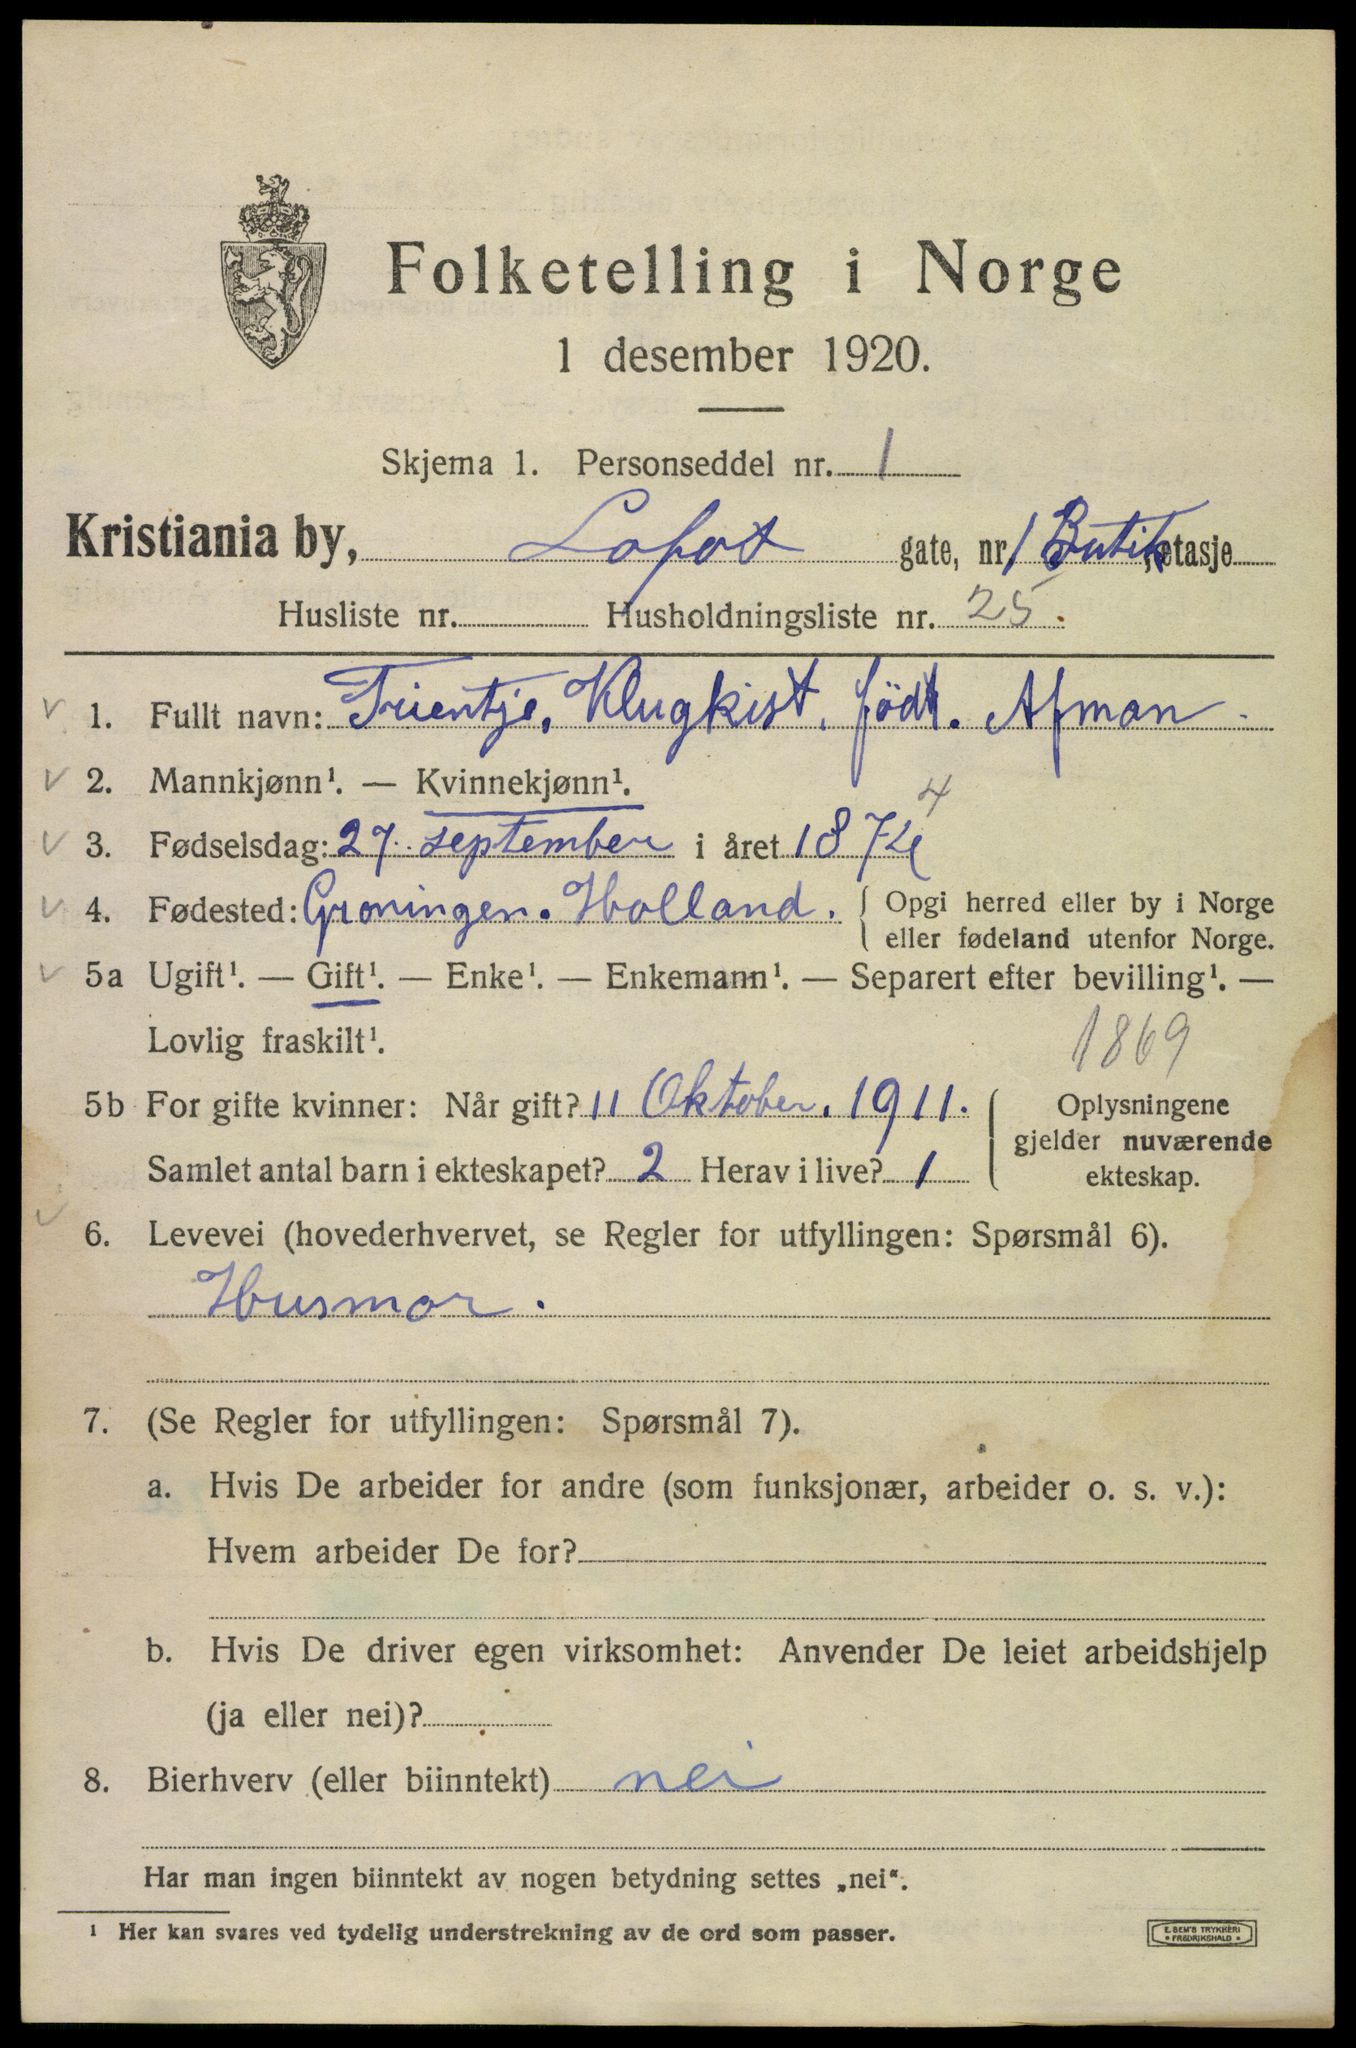 Folketelling i Norge
1 desember 1920.
Skjema 1. Personseddel nr. 1
Kristiania by, Lofot gate, nr. 1 Butik, etasje
Husliste nr. Husholdningsliste nr. 25.
1. Fullt navn: Trientje, Klugkist. född. Afman
2. Mannkjønn¹. — Kvinnekjønn¹.
4
3. Fødselsdag: 27. september i året 1874
4. Fødested: Groningen. Holland. { Opgi herred eller by i Norge
eller fødeland utenfor Norge.
5a Ugift¹. — Gift¹. — Enke¹. — Enkemann¹. — Separert efter bevilling¹. —
Lovlig fraskilt¹.
1869
5b For gifte kvinner: Når gift? 11 Oktober. 1911.
Samlet antal barn i ekteskapet? 2 Herav i live? 1
Oplysningene
gjelder nuværende
ekteskap.
6. Levevei (hovederhvervet, se Regler for utfyllingen: Spørsmål 6).
Husmor.
7. (Se Regler for utfyllingen: Spørsmål 7).
a. Hvis De arbeider for andre (som funksjonær, arbeider o. s. v.):
Hvem arbeider De for?
b. Hvis De driver egen virksomhet: Anvender De leiet arbeidshjelp
(ja eller nei)?
8. Bierhverv (eller biinntekt) nei
Har man ingen biinntekt av nogen betydning settes „nei“.
¹ Her kan svares ved tydelig understrekning av de ord som passer.
E. SEM'S TRYKKERI
* FREDRIKSHALD *